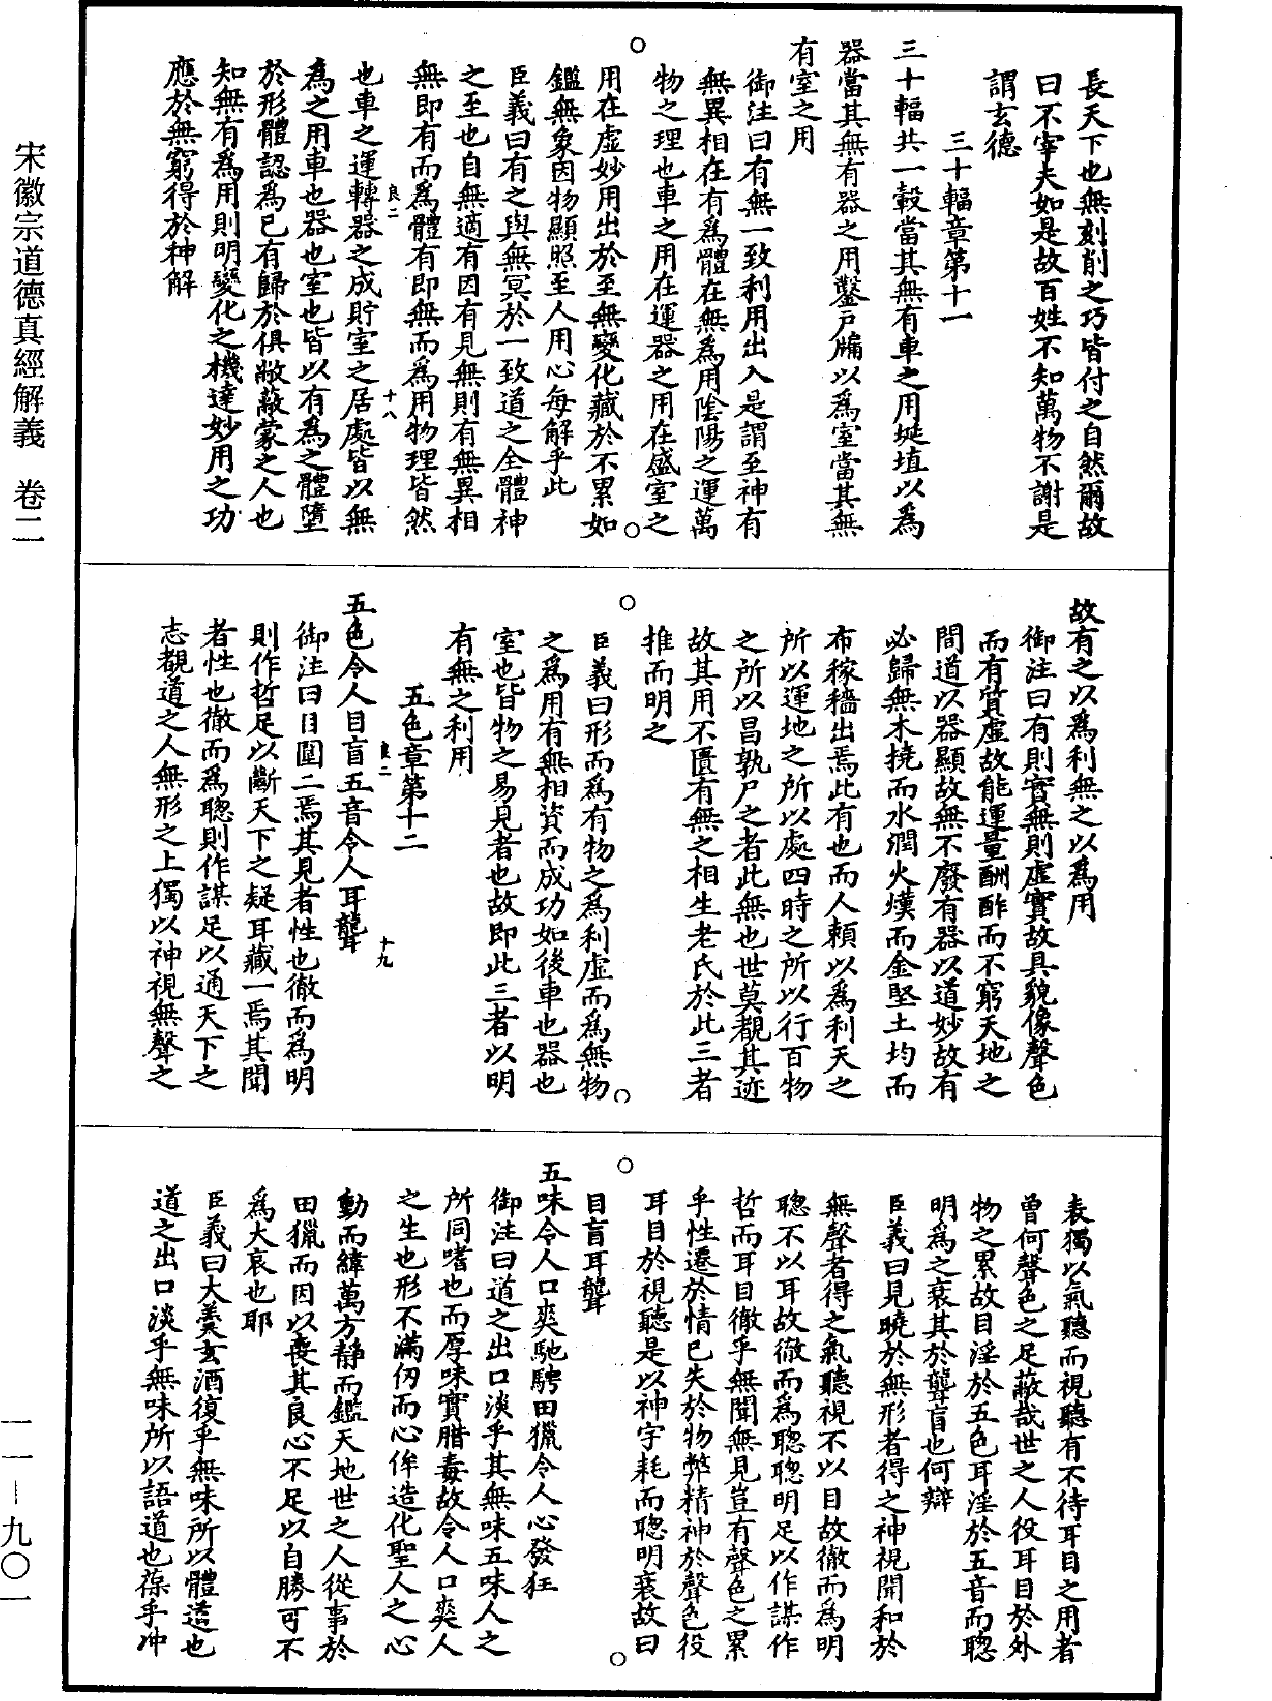 長天下也無刻削之巧皆付之自然爾故
曰不宰夫如是故百姓不知萬物不謝是
謂玄德
三十輻章第十一
三十輻共一轂當其無有車之用埏埴以爲
器當其無有器之用鑿戶牖以爲室當其無
有室之用
御注曰有無一致利用出入是謂至神有
無異相在有爲體在無爲用陰陽之運萬
物之理也車之用在運器之用在盛室之
用在虛妙用出於至無變化藏於不累如
鑑無象因物顯照至人用心每解乎此
臣義曰有之與無冥於一致道之全體神
之至也自無適有因有見無則有無異相
無即有而爲體有即無而爲用物理皆然
良二
十八
也車之運轉器之成貯室之居處皆以無
爲之用車也器也室也皆以有爲之體墮
於形體認爲已有歸於俱敝蔽蒙之人也
知無有爲用則明變化之機達妙用之功
應於無窮得於神解
故有之以爲利無之以爲用
御注曰有則實無則虛實故具貌像聲色
而有質虛故能運量酬酢而不窮天地之
間道以器顯故無不廢有器以道妙故有
必歸無木撓而水潤火熯而金堅土均而
布稼穡出焉此有也而人賴以爲利天之
所以運地之所以處四時之所以行百物
之所以昌孰尸之者此無也世莫覩其迹
故其用不匱有無之相生老氏於此三者
推而明之
臣義曰形而爲有物之爲利虛而爲無物
之爲用有無相資而成功如後車也器也
室也皆物之易見者也故即此三者以明
有無之利用
五色章第十二
良二
十九
五色令人目盲五音令人耳聾
御注曰目圍二焉其見者性也徹而爲明
則作哲足以斷天下之疑耳藏一焉其聞
者性也徹而爲聰則作謀足以通天下之
志覩道之人無形之上獨以神視無聲之
表獨以氣聽而視聽有不待耳目之用者
曾何聲色之足蔽哉世之人役耳目於外
物之累故目淫於五色耳淫於五音而聰
明爲之衰其於聾盲也何辯
臣義曰見曉於無形者得之神視聞和於
無聲者得之氣聽視不以目故徹而爲明
聰不以耳故徹而爲聰聰明足以作謀作
哲而耳目徹乎無聞無見豈有聲色之累
乎性遷於情已失於物弊精神於聲色役
耳目於視聽是以神宇耗而聰明衰故曰
目盲耳聾
五味令人口爽馳騁田獵令人心發狂
御注曰道之出口淡乎其無味五味人之
所同嗜也而厚味實腊毒故令人口爽人
之生也形不滿仞而心侔造化聖人之心
動而緯萬方靜而鑑天地世之人從事於
田獵而因以喪其良心不足以自勝可不
爲大哀也耶
臣義曰大羹玄酒復乎無味所以體道也
道之出口淡乎無味所以語道也葆乎冲
宋徽宗道德真經解義　卷二
一一—九〇一